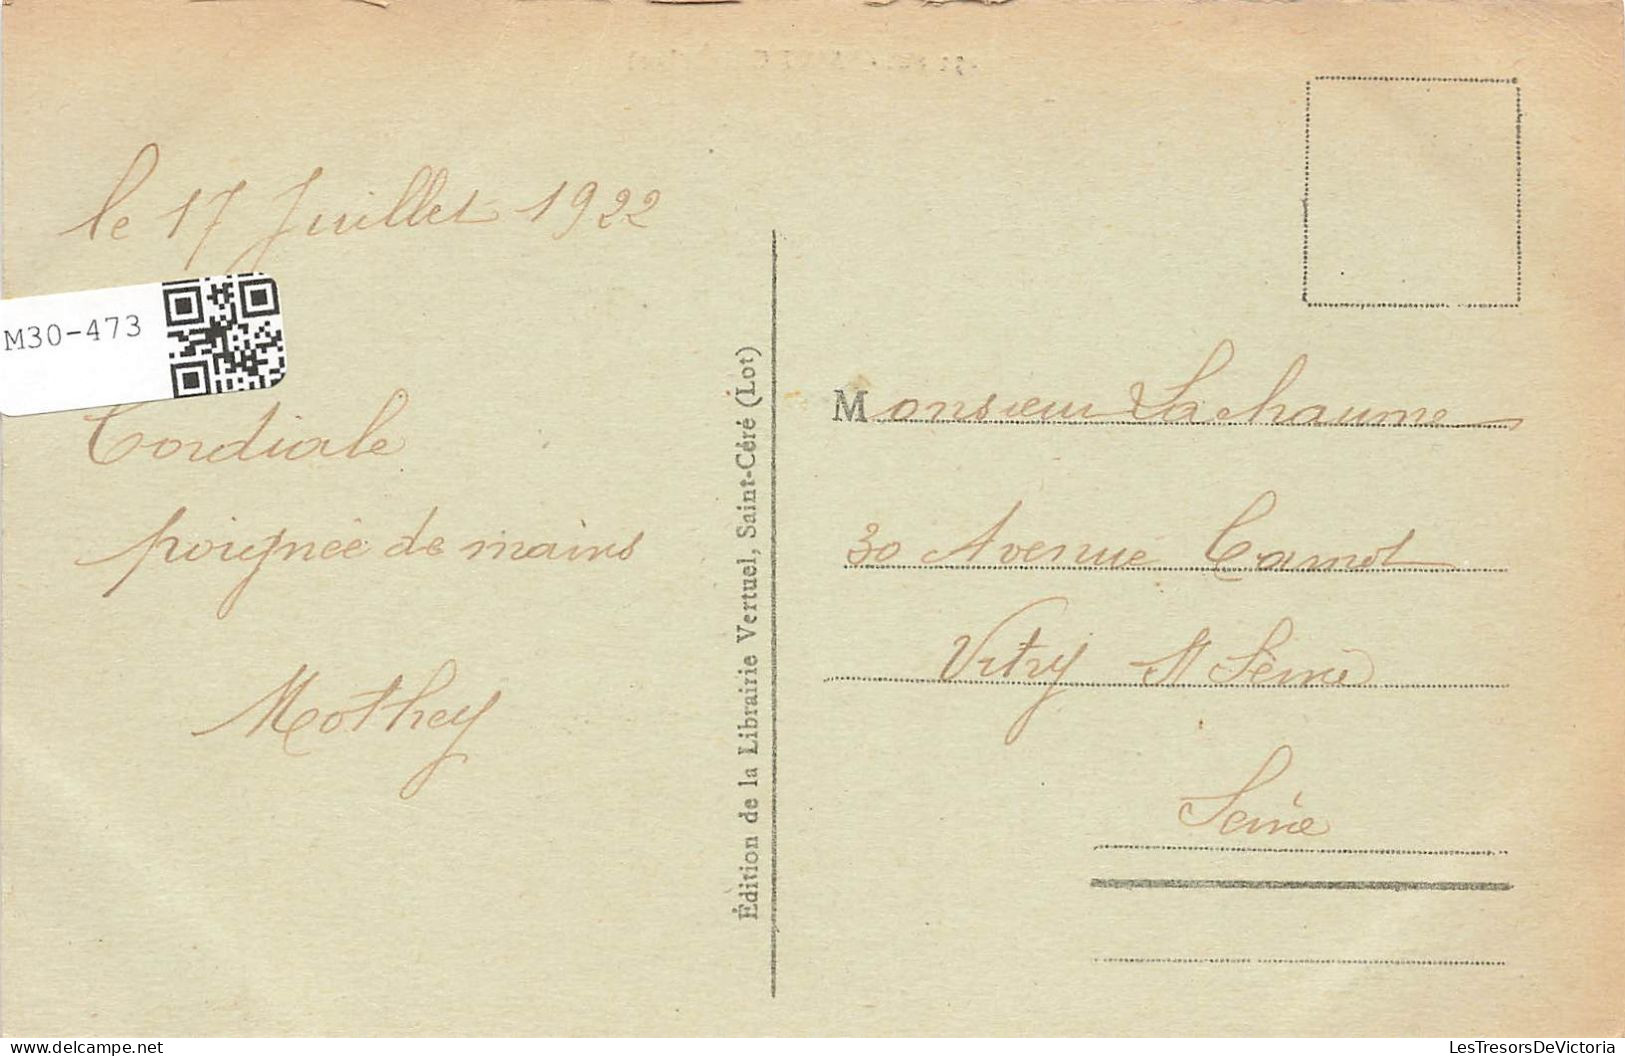 le 17 Juillet 1922
M30-473
Cordiale
poignée de mains
Mothey
Édition de la Librairie Vertuel, Saint-Céré (Lot)
Monsieur Lachaume
30 Avenue Carnot
Vitry s/ Seine
Seine
LesTresorsDeVictoria